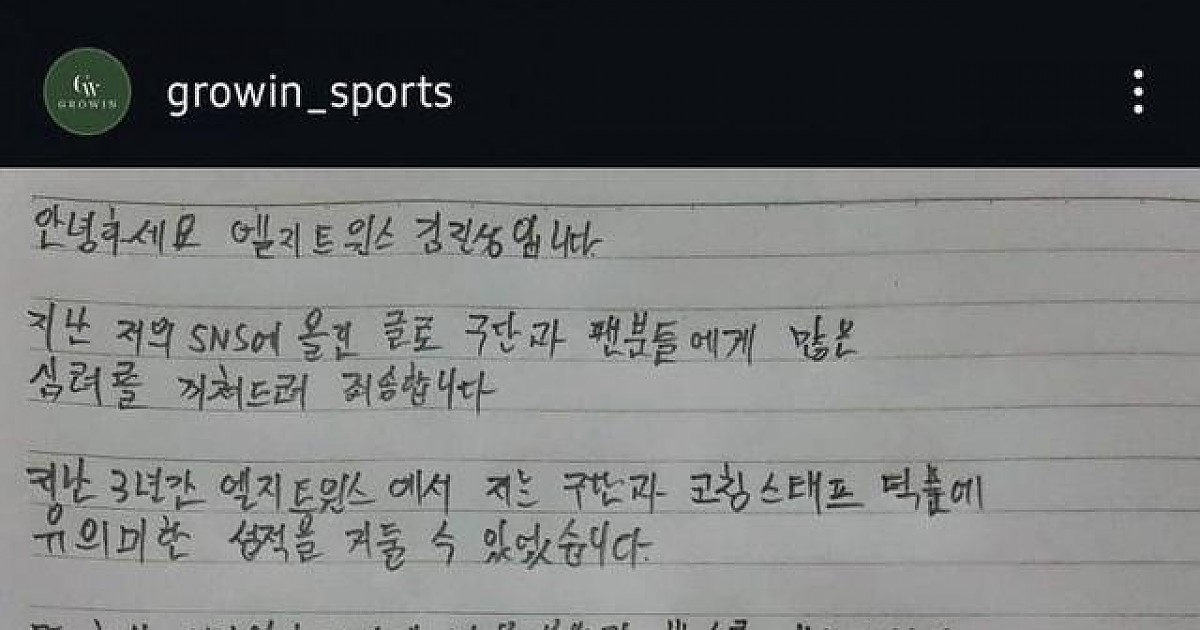 GW
GROWIN
growin_sports
안녕하세요 엘지트윈스 김진성입니다.
지난 저의 SNS에 올린 글로 구단과 팬분들에게 많은
심려를 끼쳐드려 죄송합니다
지난 3년간 엘지트윈스에서 저는 구단과 코칭스태프 덕분에
유의미한 성적을 거둘 수 있었습니다.